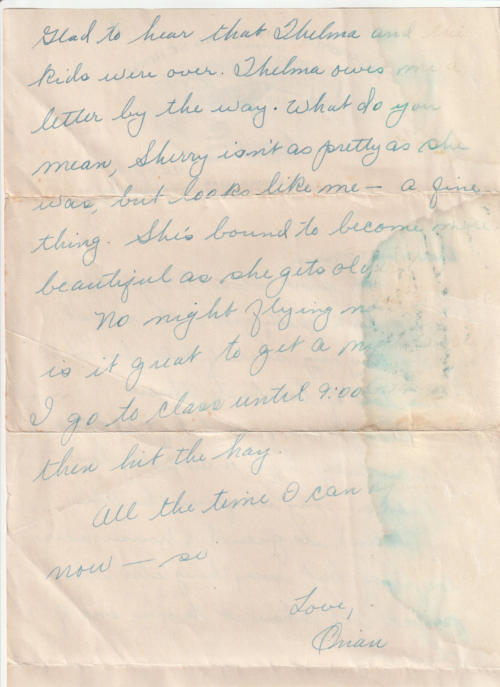 Glad to hear that Thelma and the
kids were over. Thelma owes me a
letter by the way. What do you
mean, Sherry isn't as pretty as she
was, but looks like me — a fine
thing. She's bound to become more
beautiful as she gets
No night flying
is it great to get a
I go to class until 9:00
then hit the hay.
All the time I can
now — so
Love,